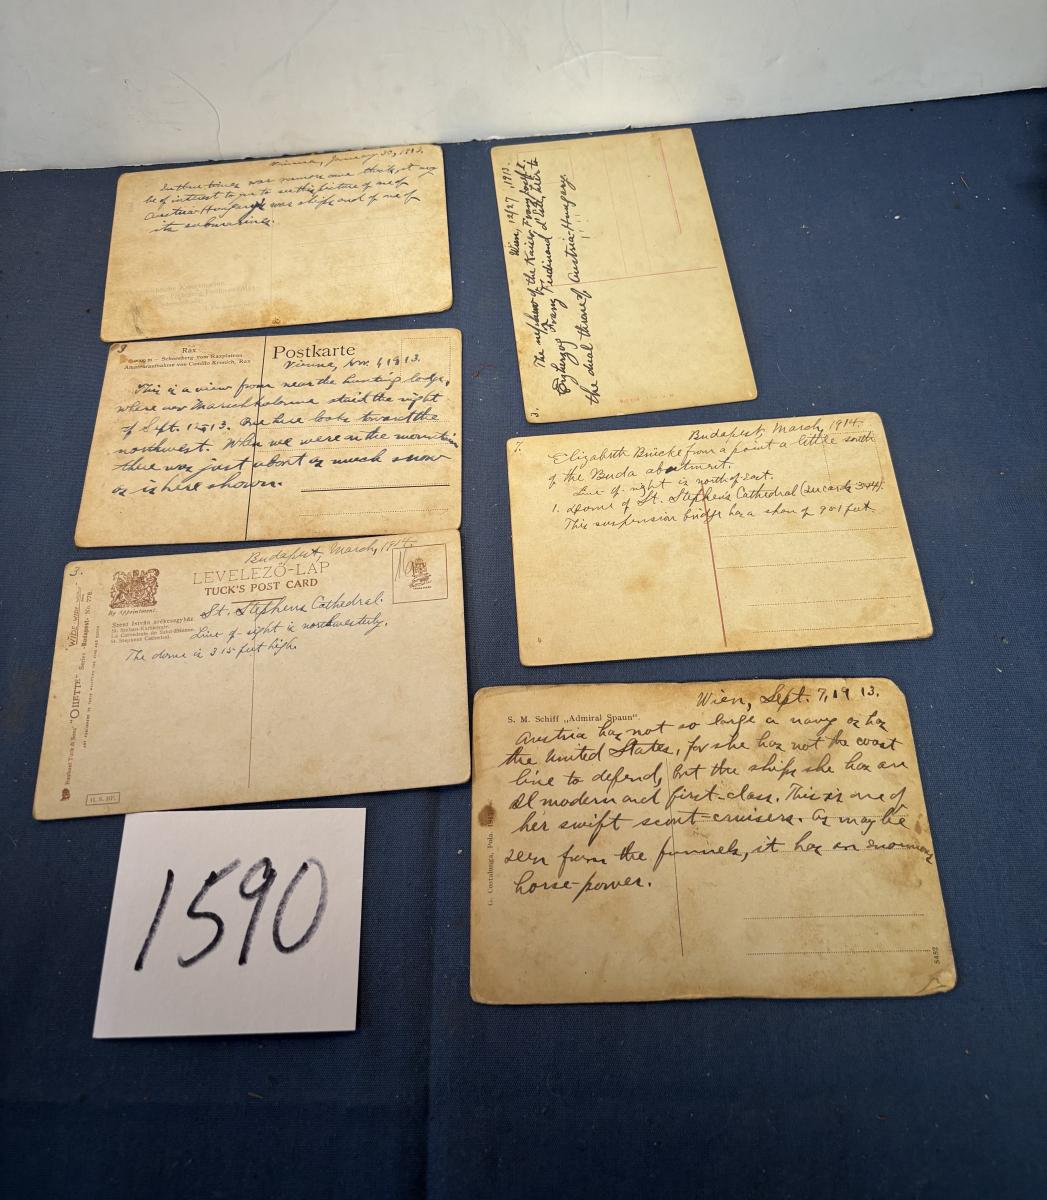 Vienna, January 30, 1913.
be of interest to you to see this picture of one of
Austria-Hungary's war ships and of one of
its submarines.
3
Rax
Schneeberg vom Raxplateau
Postkarte
Vienna, Nov. 1, 1913.
This is a view from near the hunting lodge,
where our staid the night
of Sept. 1913. One here looks toward the
northwest. When we were in the mountain
there was just about as much snow
as is here shown.
3.
Budapest, March, 1914.
LEVELEZŐ-LAP
TUCK'S POST CARD
By Appointment.
Szent István székesegyház
St. Stefans-Kathedrale.
La Cathédrale de Saint-Étienne.
St. Stephens Cathedral.
St. Stephens Cathedral.
Line of sight is northwesterly.
The dome is 315 feet high.
Raphael Tuck & Sons' "OILETTE" Serie "Budapest" No. 778
H. S. BP.
1590
Wien, 12/27, 1913.
The nephew of the Kaiser, Franz Josef I,
Erzherzog Franz Ferdinand d'Este, heir to
the dual throne of Austria-Hungary.
3.
7.
Budapest, March, 1914.
Elizabeth Brücke from a point a little south
of the Buda abutment.
Line of sight is north of east.
1. Dome of St. Stephen's Cathedral (see cards 3 4).
This suspension bridge has a span of 951 feet
Wien, Sept. 7, 1913.
S. M. Schiff „Admiral Spaun".
Austria has not so large a navy as has
the United States, for she has not the coast
line to defend, but the ships she has are
all modern and first-class. This is one of
her swift scout-cruisers. As may be
seen from the funnels, it has an enormous
horse-power.
G. Costalunga, Pola.
5452